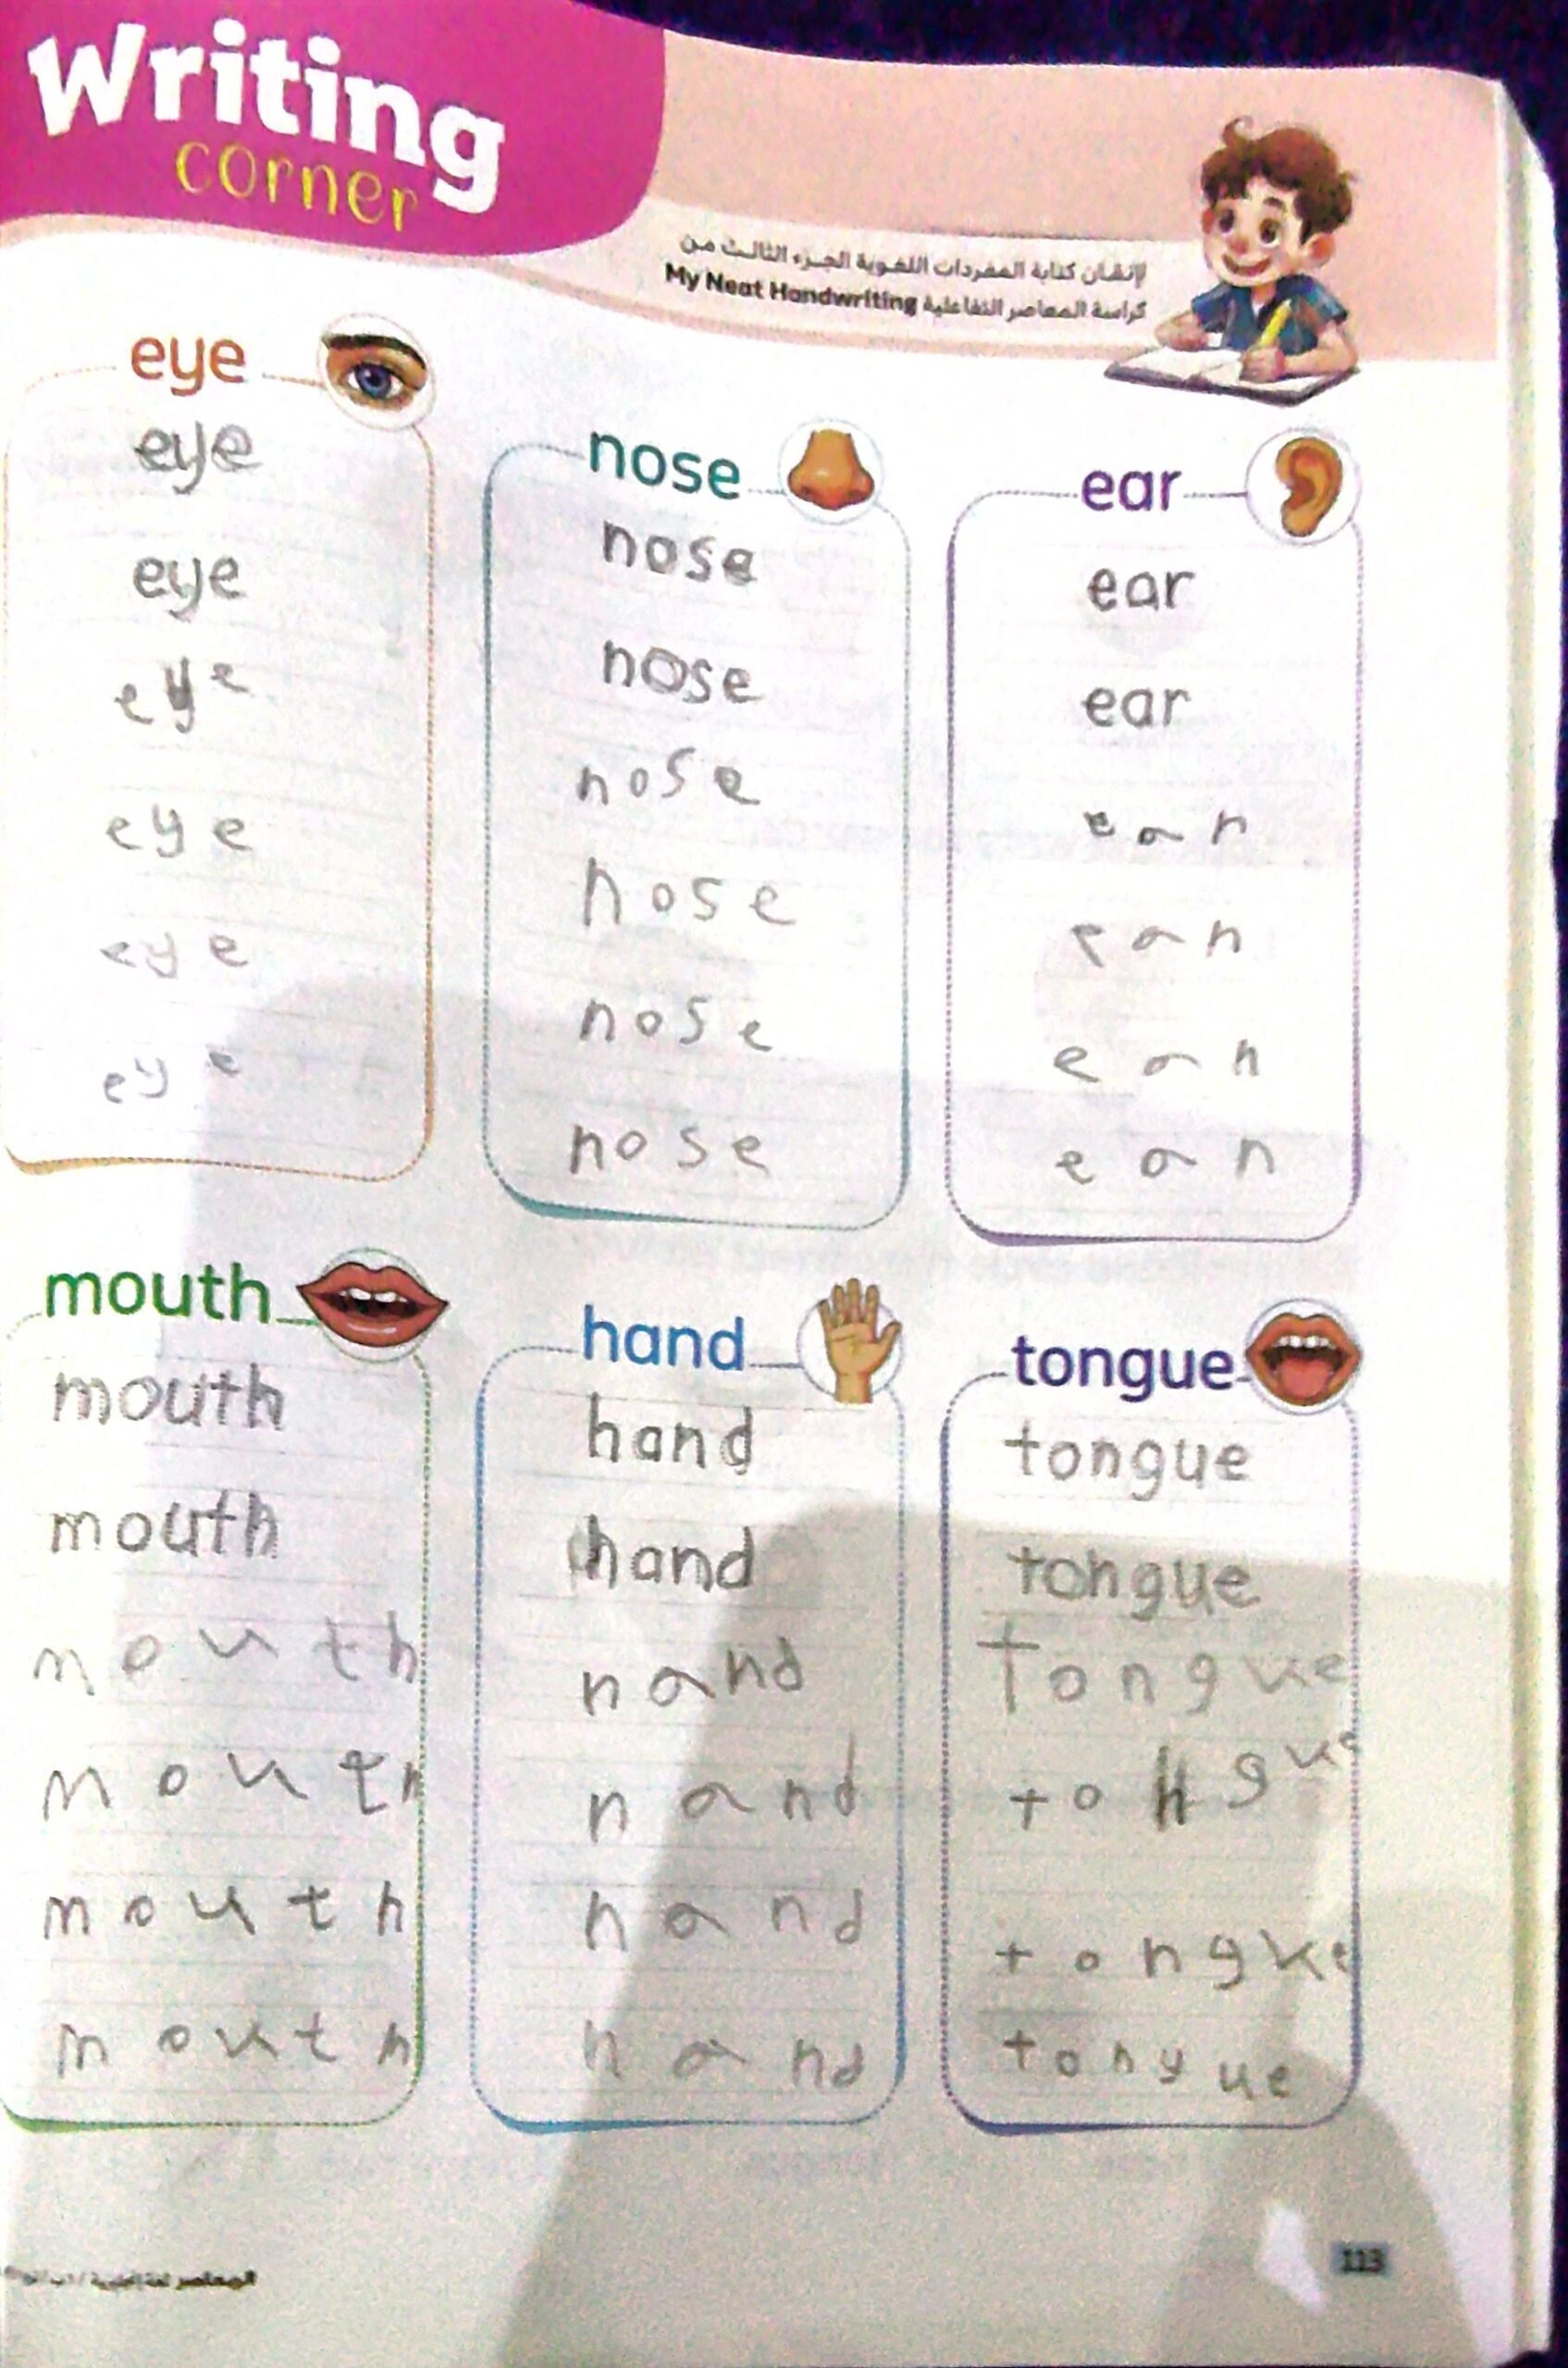 Writing
corner
لإتقان كتابة المفردات اللغوية الجزء الثالث من
كراسة المعاصر التفاعلية My Neat Handwriting
eye
eye
eye
eye
eye
eye
eye
nose
nose
nose
nose
nose
nose
nose
ear
ear
ear
e a n
e a n
e a n
e a n
mouth
mouth
mouth
m o u t h
m o u t h
m o u t h
m o u t h
hand
hand
hand
n a n d
n a n d
n a n d
n a n d
tongue
tongue
tongue
T o n g u e
t o n g u e
t o n g u e
t o n y u e
المعاصر لغة إنجليزية
113